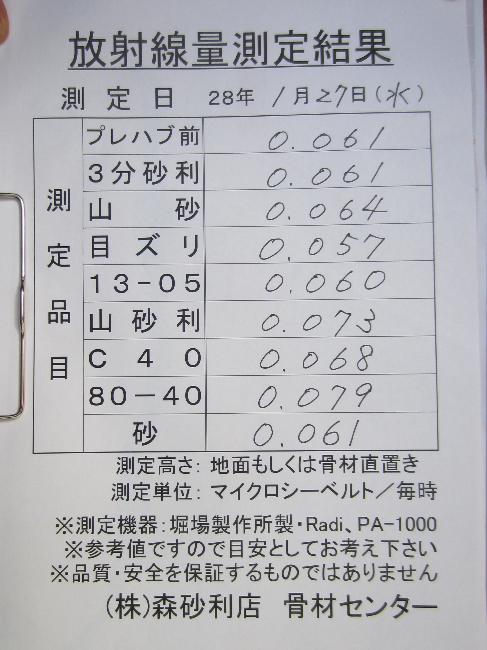 放射線量測定結果
測定日 28年 1月27日(水)
測定品目
プレハブ前 0.061
3分砂利 0.061
山砂 0.064
目ズリ 0.057
13-05 0.060
山砂利 0.073
C40 0.068
80-40 0.079
砂 0.061
測定高さ:地面もしくは骨材直置き
測定単位:マイクロシーベルト/毎時
※測定機器:堀場製作所製・Radi、PA-1000
※参考値ですので目安としてお考え下さい
※品質・安全を保証するものではありません
(株)森砂利店 骨材センター